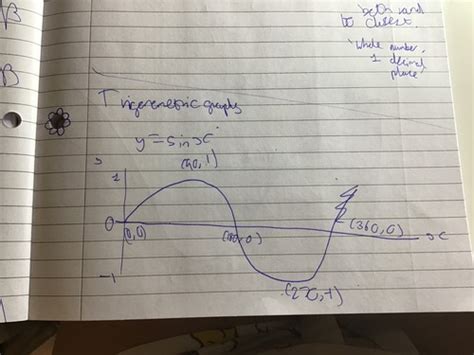 β
β
both and
to
'whole number,
1 decimal
place'
Trigonometric graphs
y = sin x
(90, 1)
1
0
(0,0)
(180,0)
(360,0)
x
-1
(270,-1)